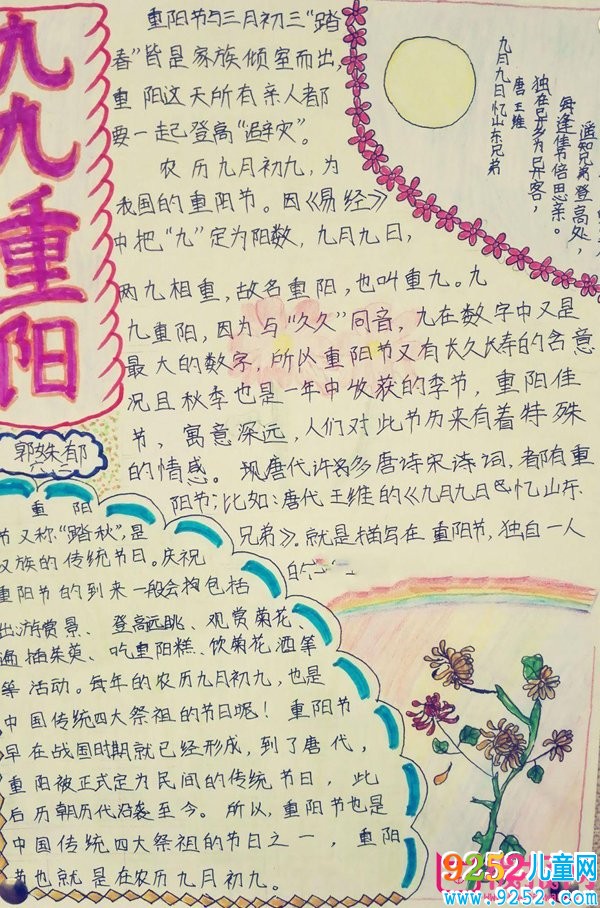 九九重阳
重阳节与三月初三“踏
春”皆是家族倾室而出,
重阳这天所有亲人都
要一起登高“避灾”。
农历九月初九,为
我国的重阳节。因《易经》
中把“九”定为阳数,九月九日,
两九相重,故名重阳,也叫重九。九
九重阳,因为与“久久”同音,九在数字中又是
最大的数字,所以重阳节又有长久长寿的含意
况且秋季也是一年中收获的季节,重阳佳
节,寓意深远,人们对此节历来有着特殊
的情感。现唐代许多唐诗宋诗词,都有重
阳节;比如:唐代王维的《九月九日忆山东
兄弟》。就是描写在重阳节,独自一人
的
九月九日忆山东兄弟
唐 王维
独在异乡为异客,
每逢佳节倍思亲。
遥知兄弟登高处,
郭姝郁
六二
重阳
节又称“踏秋”,是
汉族的传统节日。庆祝
重阳节的到来一般会构包括
出游赏景、登高远眺、观赏菊花、
遍插茱萸、吃重阳糕、饮菊花酒等
等活动。每年的农历九月初九,也是
中国传统四大祭祖的节日呢!重阳节
早在战国时期就已经形成,到了唐代,
重阳被正式定为民间的传统节日,此
后历朝历代沿袭至今。所以,重阳节也是
中国传统四大祭祖的节日之一,重阳
节也就是在农历九月初九。
9252儿童网
www.9252.com